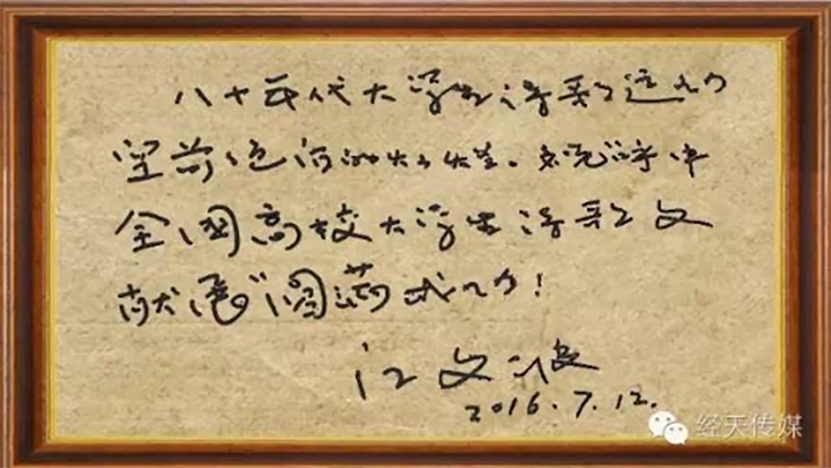 八十年代大学生诗歌运动
空前绝后的
全国高校大学生诗歌文
献展"圆满成功!
江文波
2016.7.12.
经天传媒